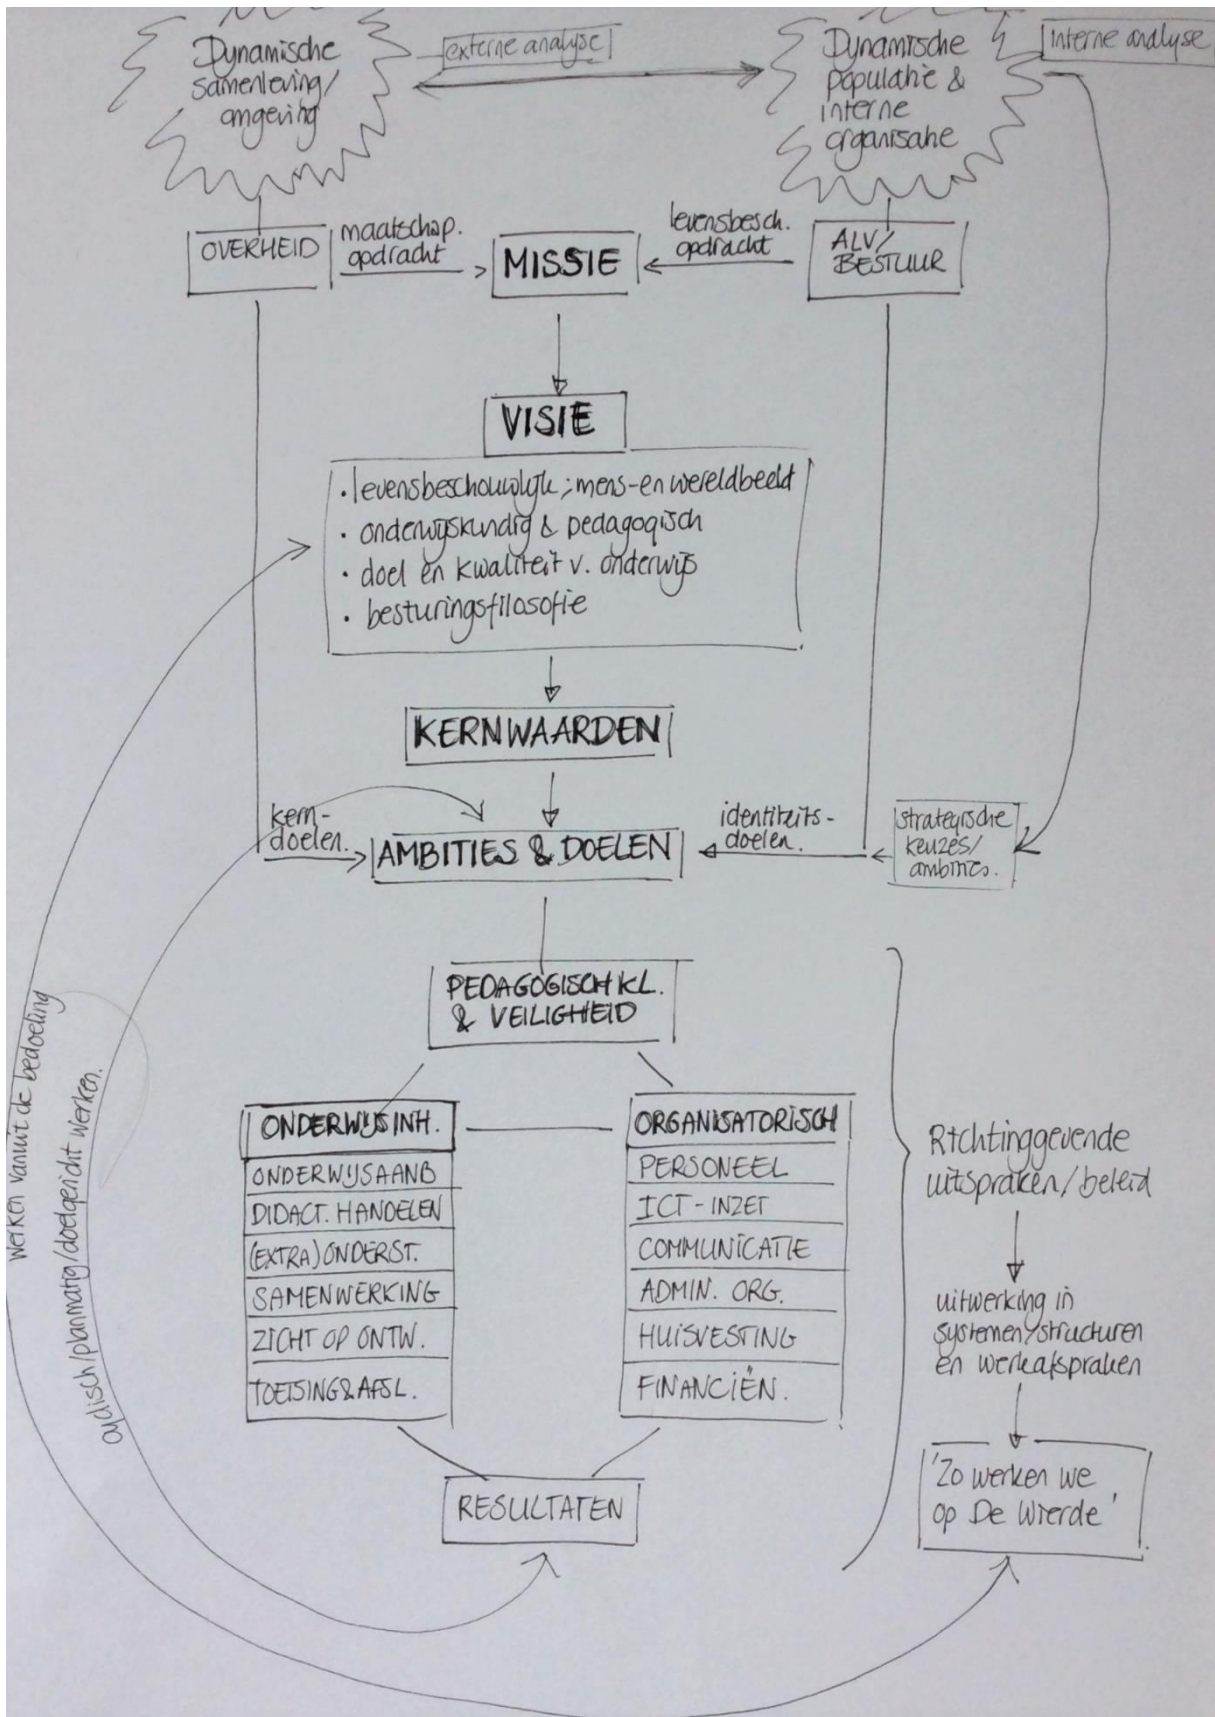 Dynamische
samenleving/
omgeving
externe analyse
Dynamische
populatie &
interne
organisatie
interne analyse
OVERHEID
maatschap.
opdracht
MISSIE
levensbesch.
opdracht
ALV/
BESTUUR
VISIE
· levensbeschouwlijk; mens-en wereldbeeld
· onderwijskundig & pedagogisch
· doel en kwaliteit v. onderwijs
· besturingsfilosofie
KERNWAARDEN
kern-
doelen.
AMBITIES & DOELEN
identiteits-
doelen.
strategische
keuzes/
ambities.
PEDAGOGISCH KL.
& VEILIGHEID
ONDERWIJSINH.
ONDERWIJSAANB
DIDACT. HANDELEN
(EXTRA) ONDERST.
SAMENWERKING
ZICHT OP ONTW.
TOETSING & AFSL.
ORGANISATORISCH
PERSONEEL
ICT - INZET
COMMUNICATIE
ADMIN. ORG.
HUISVESTING
FINANCIËN.
RESULTATEN
Richtinggevende
uitspraken/beleid
uitwerking in
systemen/structuren
en werkafspraken
'Zo werken we
op De Wierde'
werken vanuit de bedoeling
cyclisch/planmatig/doelgericht werken.